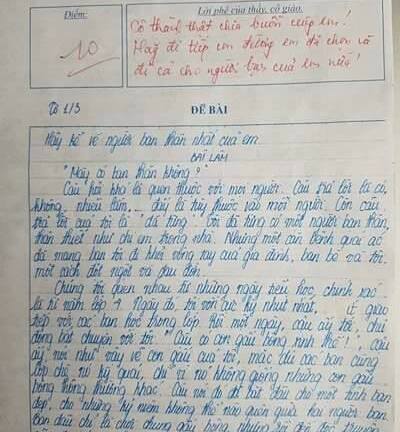 Điểm:
10
Lời phê của thầy, cô giáo.
Cô thành thật chia buồn cùng em!
Hãy đi tiếp con đường em đã chọn và
đi cả cho người bạn của em nữa!
Tổ 1/3
ĐỀ BÀI
Hãy kể về người bạn thân nhất của em.
BÀI LÀM
"Mày có bạn thân không?"
Câu hỏi khá là quen thuộc với mọi người. Câu trả lời là có,
không, nhiều lắm,... đấy là tùy thuộc vào mỗi người. Còn câu
trả lời của tôi là "đã từng". Tôi đã từng có một người bạn thân,
thân thiết như chị em trong nhà. Nhưng một căn bệnh quái ác
đã mang bạn tôi đi khỏi vòng tay của gia đình, bạn bè và tôi
một cách đột ngột và đau đớn.
Chúng tôi quen nhau từ những ngày tiểu học, chính xác
là từ năm lớp 4. Ngày đó, tôi vốn cực kỳ nhút nhát, ít giao
tiếp với các bạn học trong lớp. Rồi một ngày, cậu ấy tới, chủ
động bắt chuyện với tôi: "Cậu có con gấu bông xinh thế!", cậu
ấy nói như vậy về con gấu của tôi, mặc dù các bạn cùng
lớp chê nó kỳ quái, chỉ vì nó không giống những con gấu
bông thông thường khác. Câu nói đó đã bắt đầu cho một tình bạn
đẹp, cho những kỷ niệm không thể nào quên giữa hai người bạn.
Ban đầu chỉ là chơi chung gấu bông, nhưng rồi đọc truyện